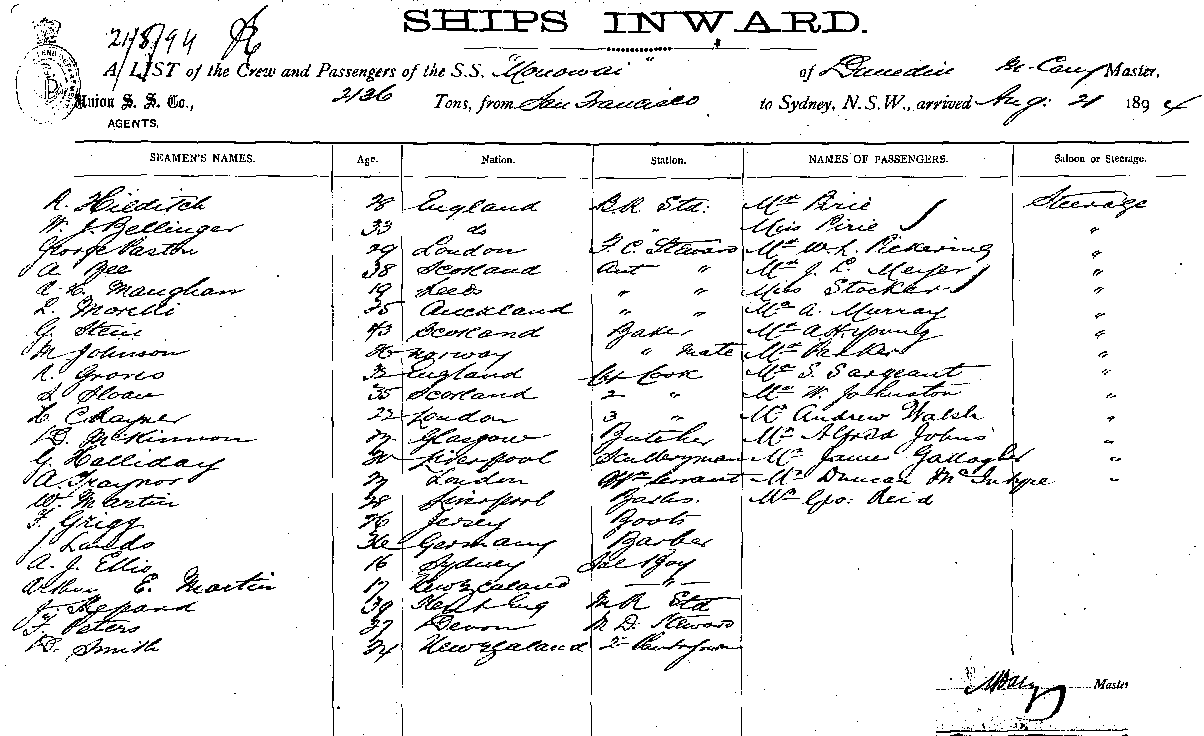 SHIPS INWARD.
21/8/94
A LIST of the Crew and Passengers of the S.S. "Monowai" of Dunedin McCay Master,
Union S. S. Co., 2136 Tons, from San Francisco to Sydney, N.S.W., arrived Aug: 21 1894
AGENTS,
SEAMEN'S NAMES. Age. Nation. Station. NAMES OF PASSENGERS. Saloon or Steerage.
R. Hilditch 28 England B.R. Std: Mr Pirie Steerage
W. J. Bellinger 33 do " Miss Pirie "
George Paston 29 London F. C. Steward Mr W. L. Pickering "
A. Bee 38 Scotland Ant " Mr J. L. Meyer "
A. L. Maughan 19 Leeds " " Miss Stocker "
L. Morelli 35 Auckland " " Mr A. Murray "
G. Stein 43 Scotland Baker Mr A. H. Young "
M Johnson Norway " mate Mr Parker "
R. Groves 32 England Cook Mr S. Sargeant "
Sloan 35 Scotland 2 " Mr W. Johnston "
C Rayner 22 London 3 " Mr Andrew Walsh "
D. McKinnon 27 Glasgow Butcher Mr Alfred Johns "
G. Halliday Liverpool Sculleryman Mr James Gallagher "
A Traynor 27 London Servant Mr Duncan McIntyre "
W. Martin 28 Liverpool Mr Geo. Reid
F. Grigg 26 Jersey Boots
J. Lands 36 Germany Barber
A. J. Ellis 16 Sydney Sal Boy
Arthur E. Martin 17 New Zealand "
J. Shepard 39 Kent Eng M R Std
F. Peters 37 Devon Steward
D. Smith 24 New Zealand 2nd Pantryman
Master